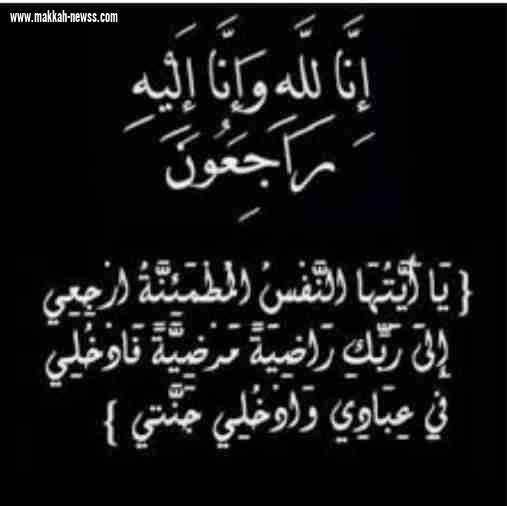 www.makkah-newss.com
إِنَّا لِلَّهِ وَإِنَّا إِلَيْهِ
رَاجِعُونَ
{ يَا أَيَّتُهَا النَّفْسُ الْمُطْمَئِنَّةُ ارْجِعِي
إِلَىٰ رَبِّكِ رَاضِيَةً مَرْضِيَّةً فَادْخُلِي
فِي عِبَادِي وَادْخُلِي جَنَّتِي }